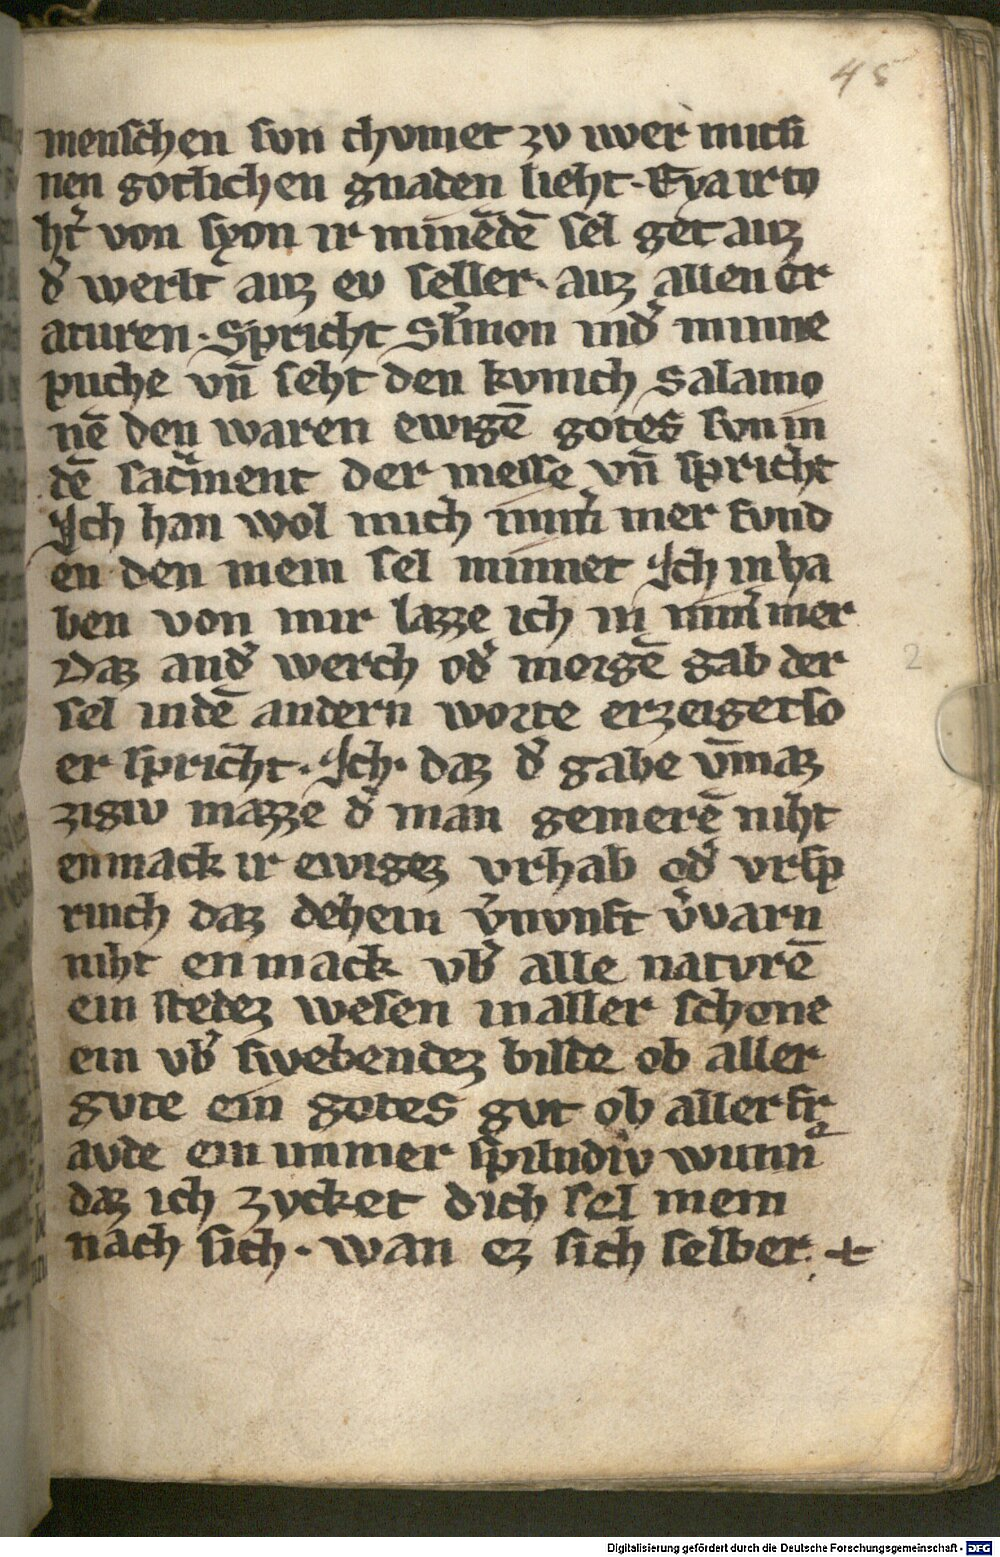 45
menschen svn chvmet zv uwer mitn
nen gotlichen gnaden lieht · Eya ir to
ht̉ von syon ir minēdē sel get auz
d̉ werlt auz ev seller · auz allen cr
aturen · Spricht Sl̉mon in d̉ minne
puche vn̄ seht den kvnich Salamo
nē den waren ewigē gotes svn in
dē sacͣment der messe vn̄ spricht
Ich han wol mich nim̉ mer fvnd
en den mein sel minnet Ich in ha
ben von mir lazze ich in nim̉ mer
Daz and̉ werch od̉ morgē gab der
sel in dē andern worte erzeiget so
er spricht · Ich · daz d̉ gabe vn̄maz
zigiv mazze d̉ man gemerē niht
en mack ir ewigez vrhab od̉ vrsp
rinch daz dehein v̉nvnft v̉varn
niht en mack vb̉ alle natvrē
ein stetez wesen in aller schone
ein vb̉ swebendez bilde ob aller
gvte ein gotes gvt ob aller fr
avde ein immer spilndiv wunn
daz ich zvcket dich sel mein
nach sich · wan ez sich selber
2
Digitalisierung gefördert durch die Deutsche Forschungsgemeinschaft - DFG